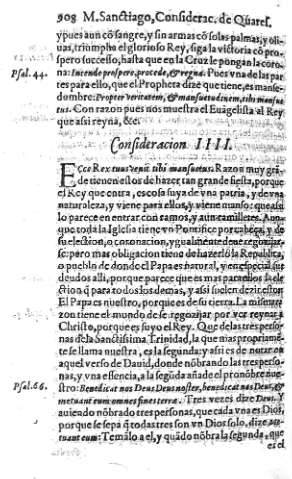 908 M. Sanctiago, Considerac. de Quares.
ypues aun cõ sangre, y sin armas cõ solas palmas, y oli-
uas, triumpho el glorioso Rey, siga la victoria cõ pro-
spero successo, hasta que en la Cruz le pongan la coro-
Psal. 44.
na: Intende prospere, procede, & regna. Pues vna de las par
tes para ello, que el Propheta dize que tiene, es manse-
dumbre: Propter veritatem, & mansuetudinem, tibi mansue
tus. Con razon pues nos muestra el Euãgelista al Rey
que asi reyna, &c.
Consideracion IIII.
ECce Rex tuus venit tibi mansuetus. Razon muy grã-
de tienen estos de hazer tan grande fiesta, porque
el Rey que entra, es cosa suya de vna patria, y de vna
naturaleza, y viene para ellos, y viene manso: que asi
lo parece en entrar con ramos, y aun camilletes. Aun-
que toda la Iglesia tiene vn Pontifice por cabeça, y de
su election, o coronacion, ygualmente deue regozijar
se: pero mas obligacion tiene de hazerlo la Republica,
o pueblo de donde el Papa es natural, y en especial sus
deudos alli, porque parece que es mas para ellos la ele-
ction q̃ para todos los demas, y assi suelen dezir estos:
El Papa es nuestro, porque es de su tierra. La misma ra
zon tiene el mundo de se regozijar por ver reynar a
Christo, porque es suyo el Rey. Que de las tres perso-
nas dela Sanctissima Trinidad, la que mas propriamẽ-
te se llama nuestra, es la segunda: y asi es de notar en
aquel verso de Dauid, donde nõbrando las tres perso-
nas, y vna essencia, a la segũda añade el pronõbre nue-
Psal. 66.
stro: Benedicat nos Deus Deus noster, benedicat nos Deus, &
metuant eum omnes fines terræ. Tres vezes dize Deus. Y
auiendo nõbrado tres personas, que cada vna es Dios,
porque se sepa q̃ todas tres son vn Dios solo, dize me-
tuant eum: Temãlo a el, y quãdo nõbra la segunda, que
es el